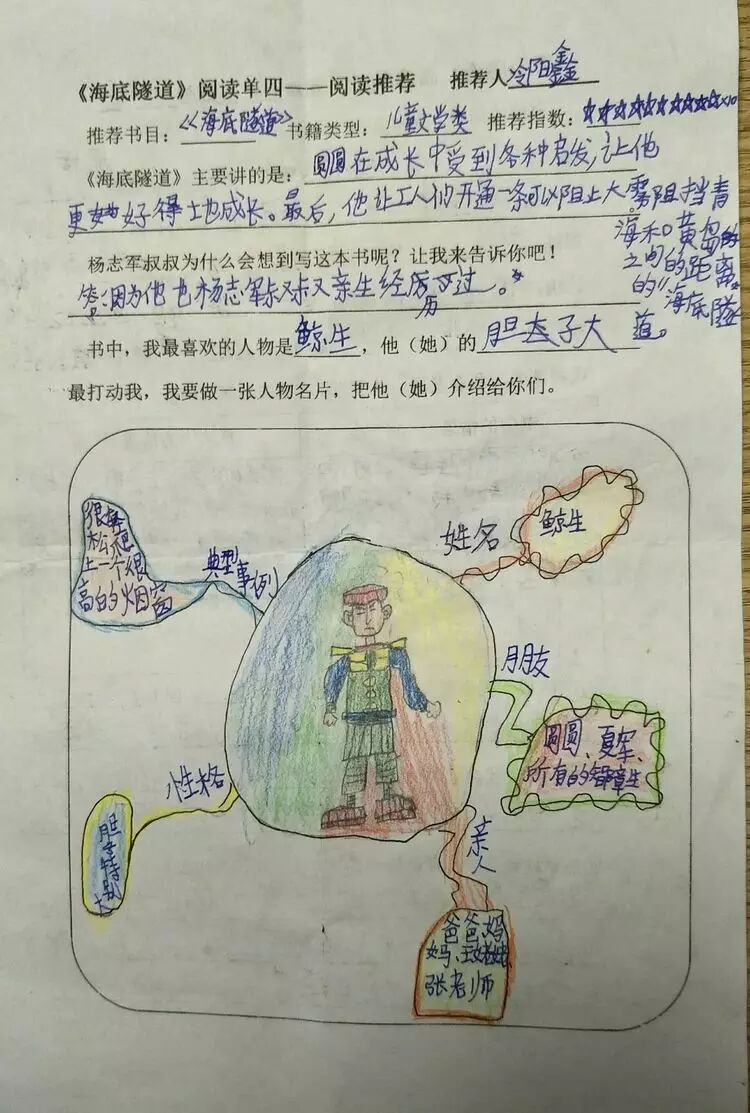 《海底隧道》阅读单四——阅读推荐 推荐人冷阳鑫
推荐书目：《海底隧道》书籍类型：儿童文学类 推荐指数：☆☆☆☆☆☆☆☆☆☆×10
《海底隧道》主要讲的是：圆圆在成长中受到各种启发，让他
更好得土也成长。最后，他让工人们开通一条可以阻止大雾阻挡青
海和黄岛的
之间的距离
的"海底隧
道。
杨志军叔叔为什么会想到写这本书呢？让我来告诉你吧！
答：因为他也杨志军叔叔又亲生经历过。
书中，我最喜欢的人物是鲸生，他（她）的胆子大
最打动我，我要做一张人物名片，把他（她）介绍给你们。
姓名
鲸生
典型
事例
很轻
松爬
上一个很
高的烟窗
朋友
圆圆、夏军、
所有的
性格
胆
特别
大
亲
人
爸爸、妈
妈、
张老师